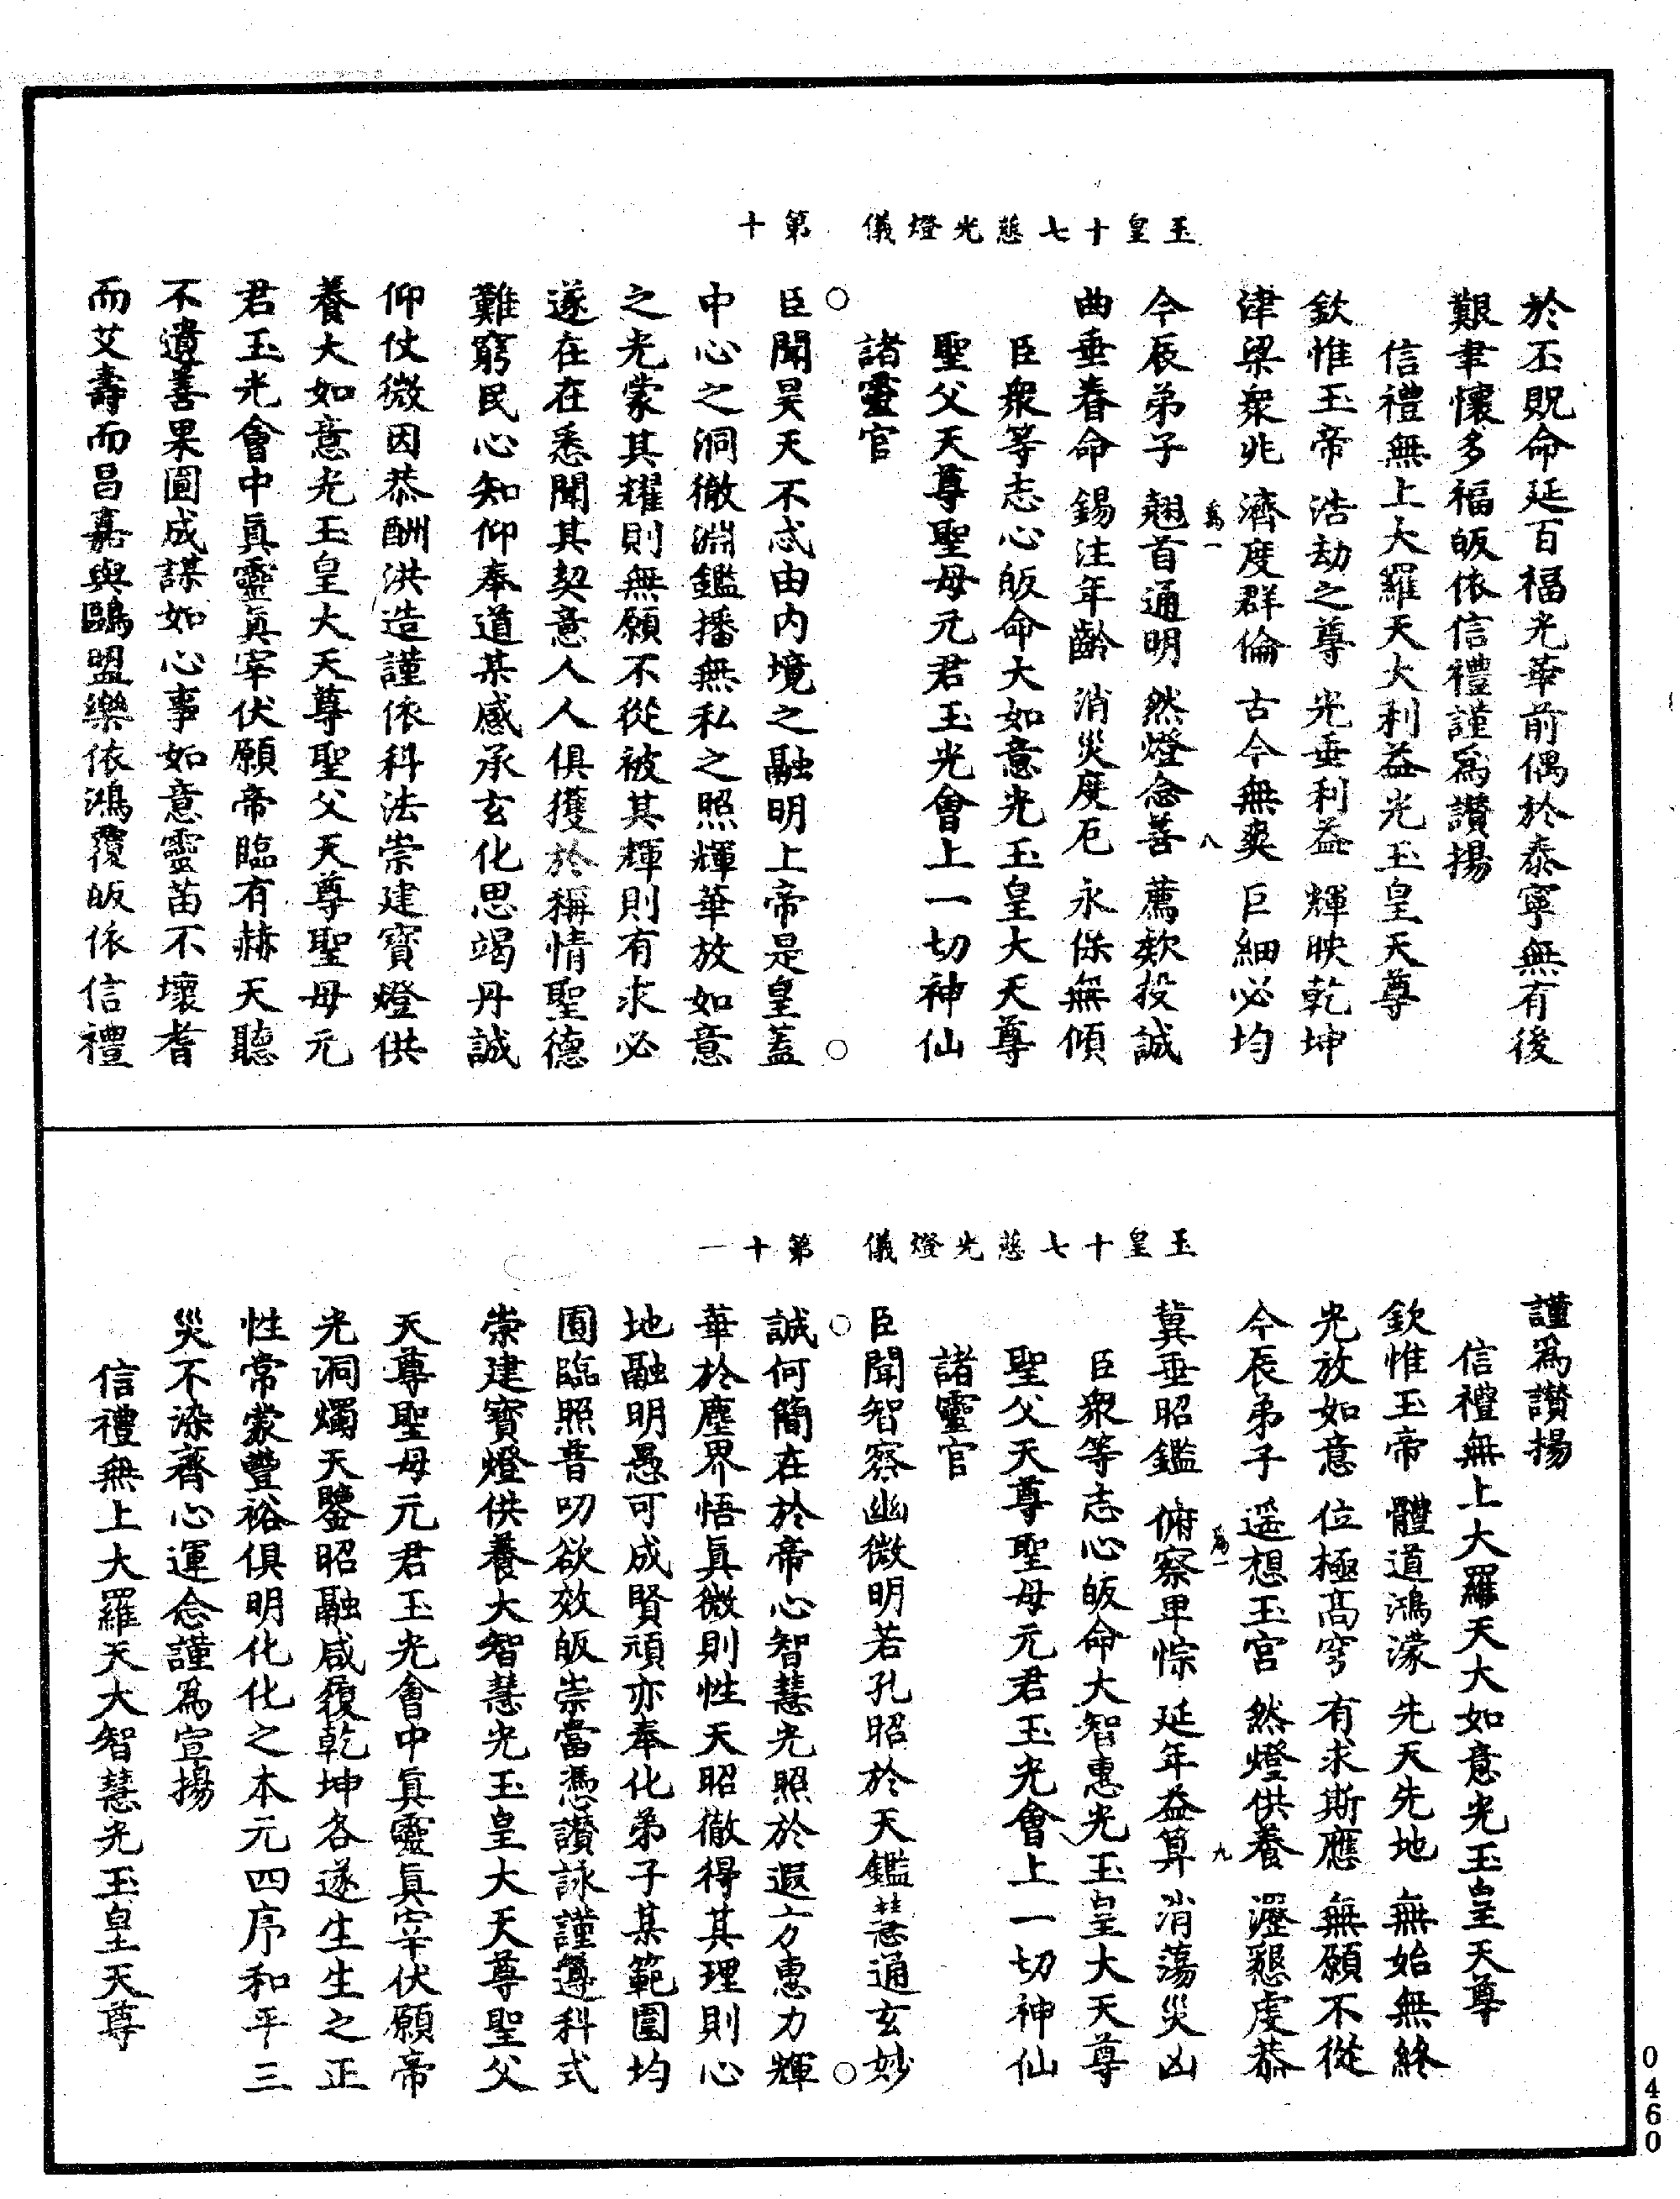 於丕貺命延百福光華前偶於泰寧無有後
艱聿懷多福皈依信禮謹爲讚揚
信禮無上大羅天大利益光玉皇天尊
欽惟玉帝 浩劫之尊 光垂利益 輝映乾坤
津梁衆兆 濟度群倫 古今無爽 巨細必均
爲一 八
今辰弟子 翹首通明 然燈念善 薦欵投誠
玉皇十七慈光燈儀 第十
曲垂眷命 錫注年齡 消災度厄 永保無傾
臣衆等志心皈命大如意光玉皇大天尊
聖父天尊聖母元君玉光會上一切神仙
諸靈官
○ ○
臣聞昊天不忒由内境之融明上帝是皇蓋
中心之洞徹淵鑑播無私之照輝華放如意
之光蒙其耀則無願不從被其輝則有求必
遂在在悉聞其契意人人俱獲於稱情聖德
難窮民心知仰奉道某感承玄化思竭丹誠
仰仗微因恭酬洪造謹依科法崇建寶燈供
養大如意光玉皇大天尊聖父天尊聖母元
君玉光會中眞靈眞宰伏願帝臨有赫天聽
不遺善果圓成謀如心事如意靈苗不壞耆
而艾壽而昌嘉與鷗盟樂依鴻覆皈依信禮
謹爲讚揚
信禮無上大羅天大如意光玉皇天尊
欽惟玉帝 體道鴻濛 先天先地 無始無終
光放如意 位極高穹 有求斯應 無願不從
今辰弟子 遥想玉宮 然燈供養 瀝懇虔恭
爲一 九
玉皇十七慈光燈儀 第十一
冀垂昭鑑 俯察卑悰 延年益算 消蕩災凶
臣衆等志心皈命大智惠光玉皇大天尊
聖父天尊聖母元君玉光會上一切神仙
諸靈官
臣聞智察幽微明若孔昭於天鑑慧通玄妙
○ ○
誠何簡在於帝心智慧光照於遐方惠力輝
華於塵界悟眞微則性天昭徹得其理則心
地融明愚可成賢頑亦奉化弟子某範圍均
囿臨照昔叨欲效皈崇當憑讚詠謹遵科式
崇建寶燈供養大智慧光玉皇大天尊聖父
天尊聖母元君玉光會中眞靈眞宰伏願帝
光洞燭天鑒昭融咸覆乾坤各遂生生之正
性常蒙豐裕俱明化化之本元四序和平三
災不染齊心運念謹爲宣揚
信禮無上大羅天大智慧光玉皇天尊
0460